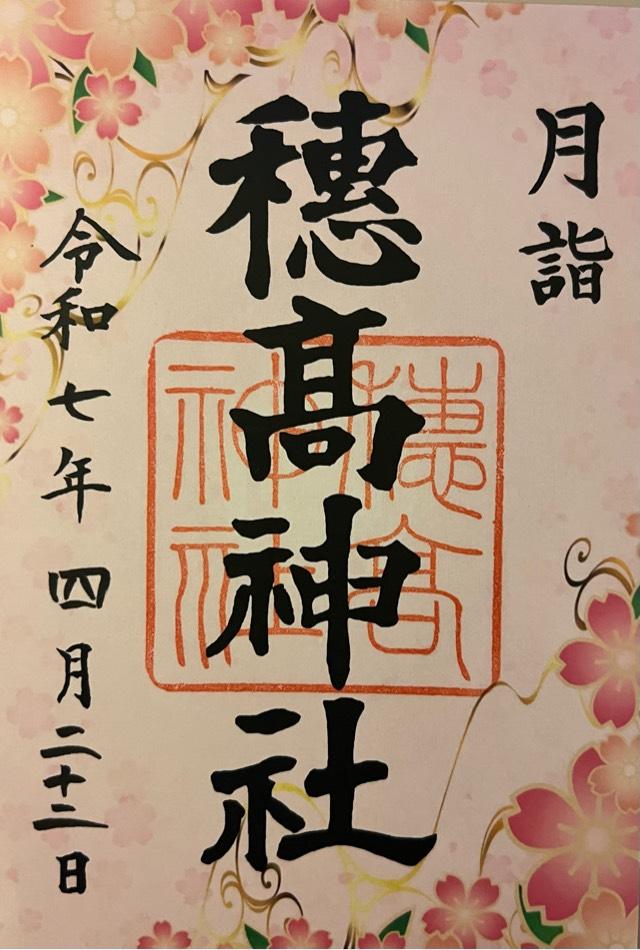 月詣
穗髙神社
穗高
神社
令和七年 四月二十二日